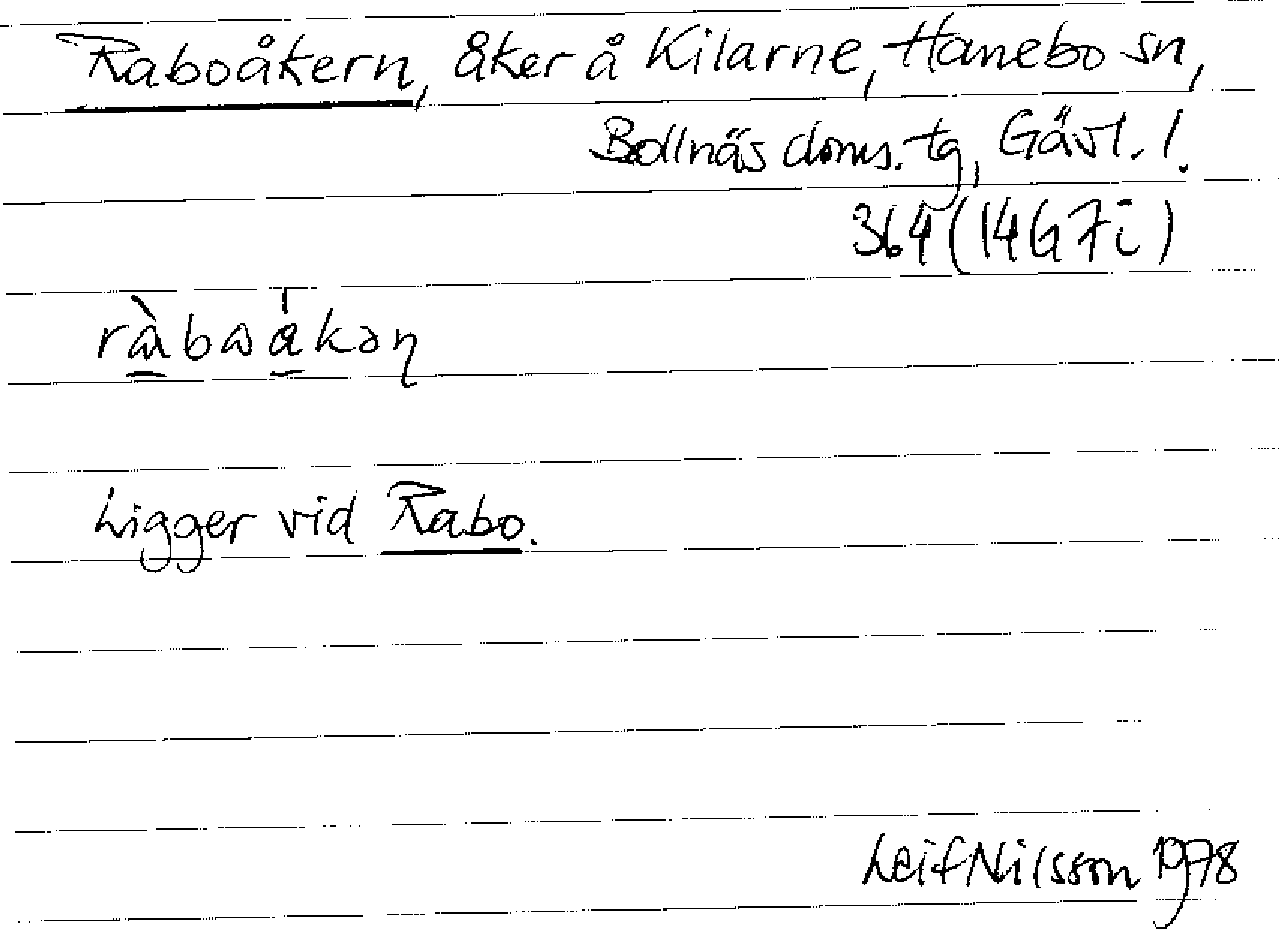 Raboåkern, åker å Kilarne, Hanebo sn,
Bollnäs doms. tg, Gävl. l.
364 (14G7i)
Ligger vid Rabo.
Leif Nilsson 1978